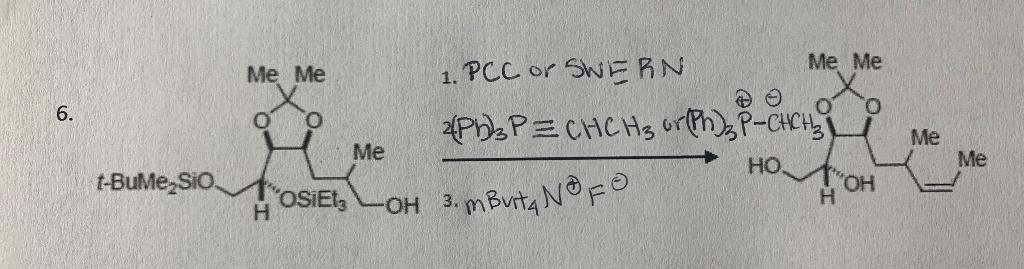 6.
Me Me
O O
Me
t-BuMe₂SiO
OSiEt₃
H
OH
1. PCC or SWERN
2(Ph)₃P≡CHCH₃ or (Ph)₃P⊕-CHCH₃⊖
3. nBut₄N⊕F⊖
Me Me
O O
Me
Me
HO
OH
H